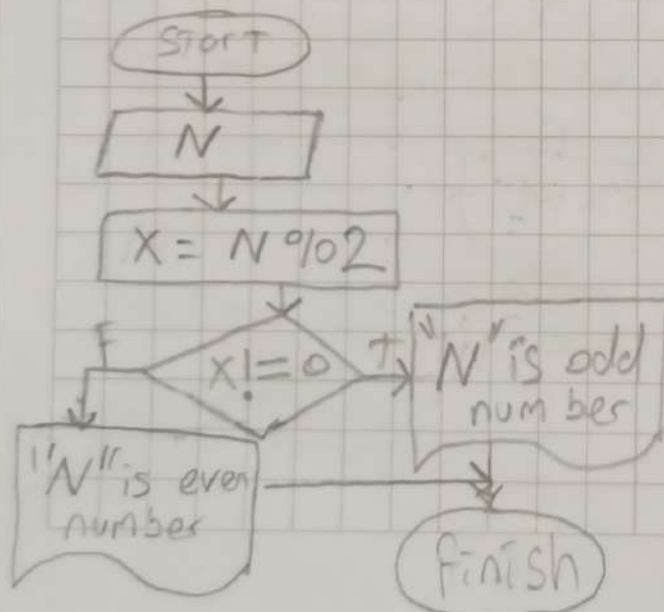 Start
N
X = N%2
X!=0
F
T
"N" is odd
number
"N" is even
number
finish